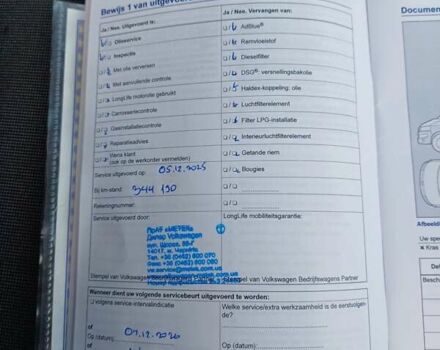 Bewijs 1 van uitgevoerd
Ja / Nee. Uitgevoerd is:
Olieservice
Inspectie
Met olie verversen
Met aanvullende controle
LongLife motorolie gebruikt
Carrosseriecontrole
Gasinstallatiecontrole
Reparatieadvies
Wens klant
(ook op de werkorder vermelden)
Service uitgevoerd op: 05.12.2025
Bij km-stand: 344 190
Rekeningnummer:
Service uitgevoerd door:
ПрАТ «МЕТЕК»
Дилер Volkswagen
Stempel van Volkswagen
Ja / Nee. Vervangen van:
AdBlue®
Remvloeistof
Dieselfilter
DSG®: versnellingsbakolie
Haldex-koppeling: olie
Luchtfilterelement
Filter LPG-installatie
Interieurluchtfilterelement
Getande riem
Bougies
LongLife mobiliteitsgarantie:
Stempel van Volkswagen Bedrijfswagens Partner
Wanneer dient uw volgende servicebeurt uitgevoerd te worden:
volgens service-intervalindicatie
of
Op (datum):
of
Welke service/extra werkzaamheid is de eerstvolgende?
Op (datum):
Documen
Afbeeldi
Uw spe
Kras
De
Besch